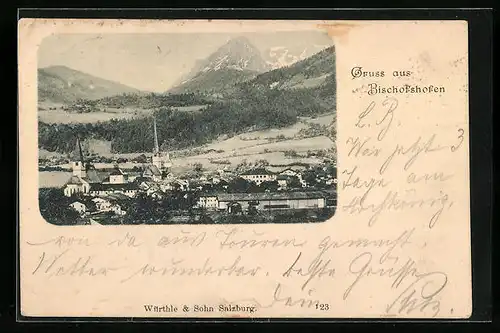 Gruss aus
Bischofshofen
L. B.
War jetzt 3
Tage am
Hochkönig,
von da aus Touren gemacht.
Wetter wunderbar. Beste Grüße
Dein
Würthle & Sohn Salzburg.
123